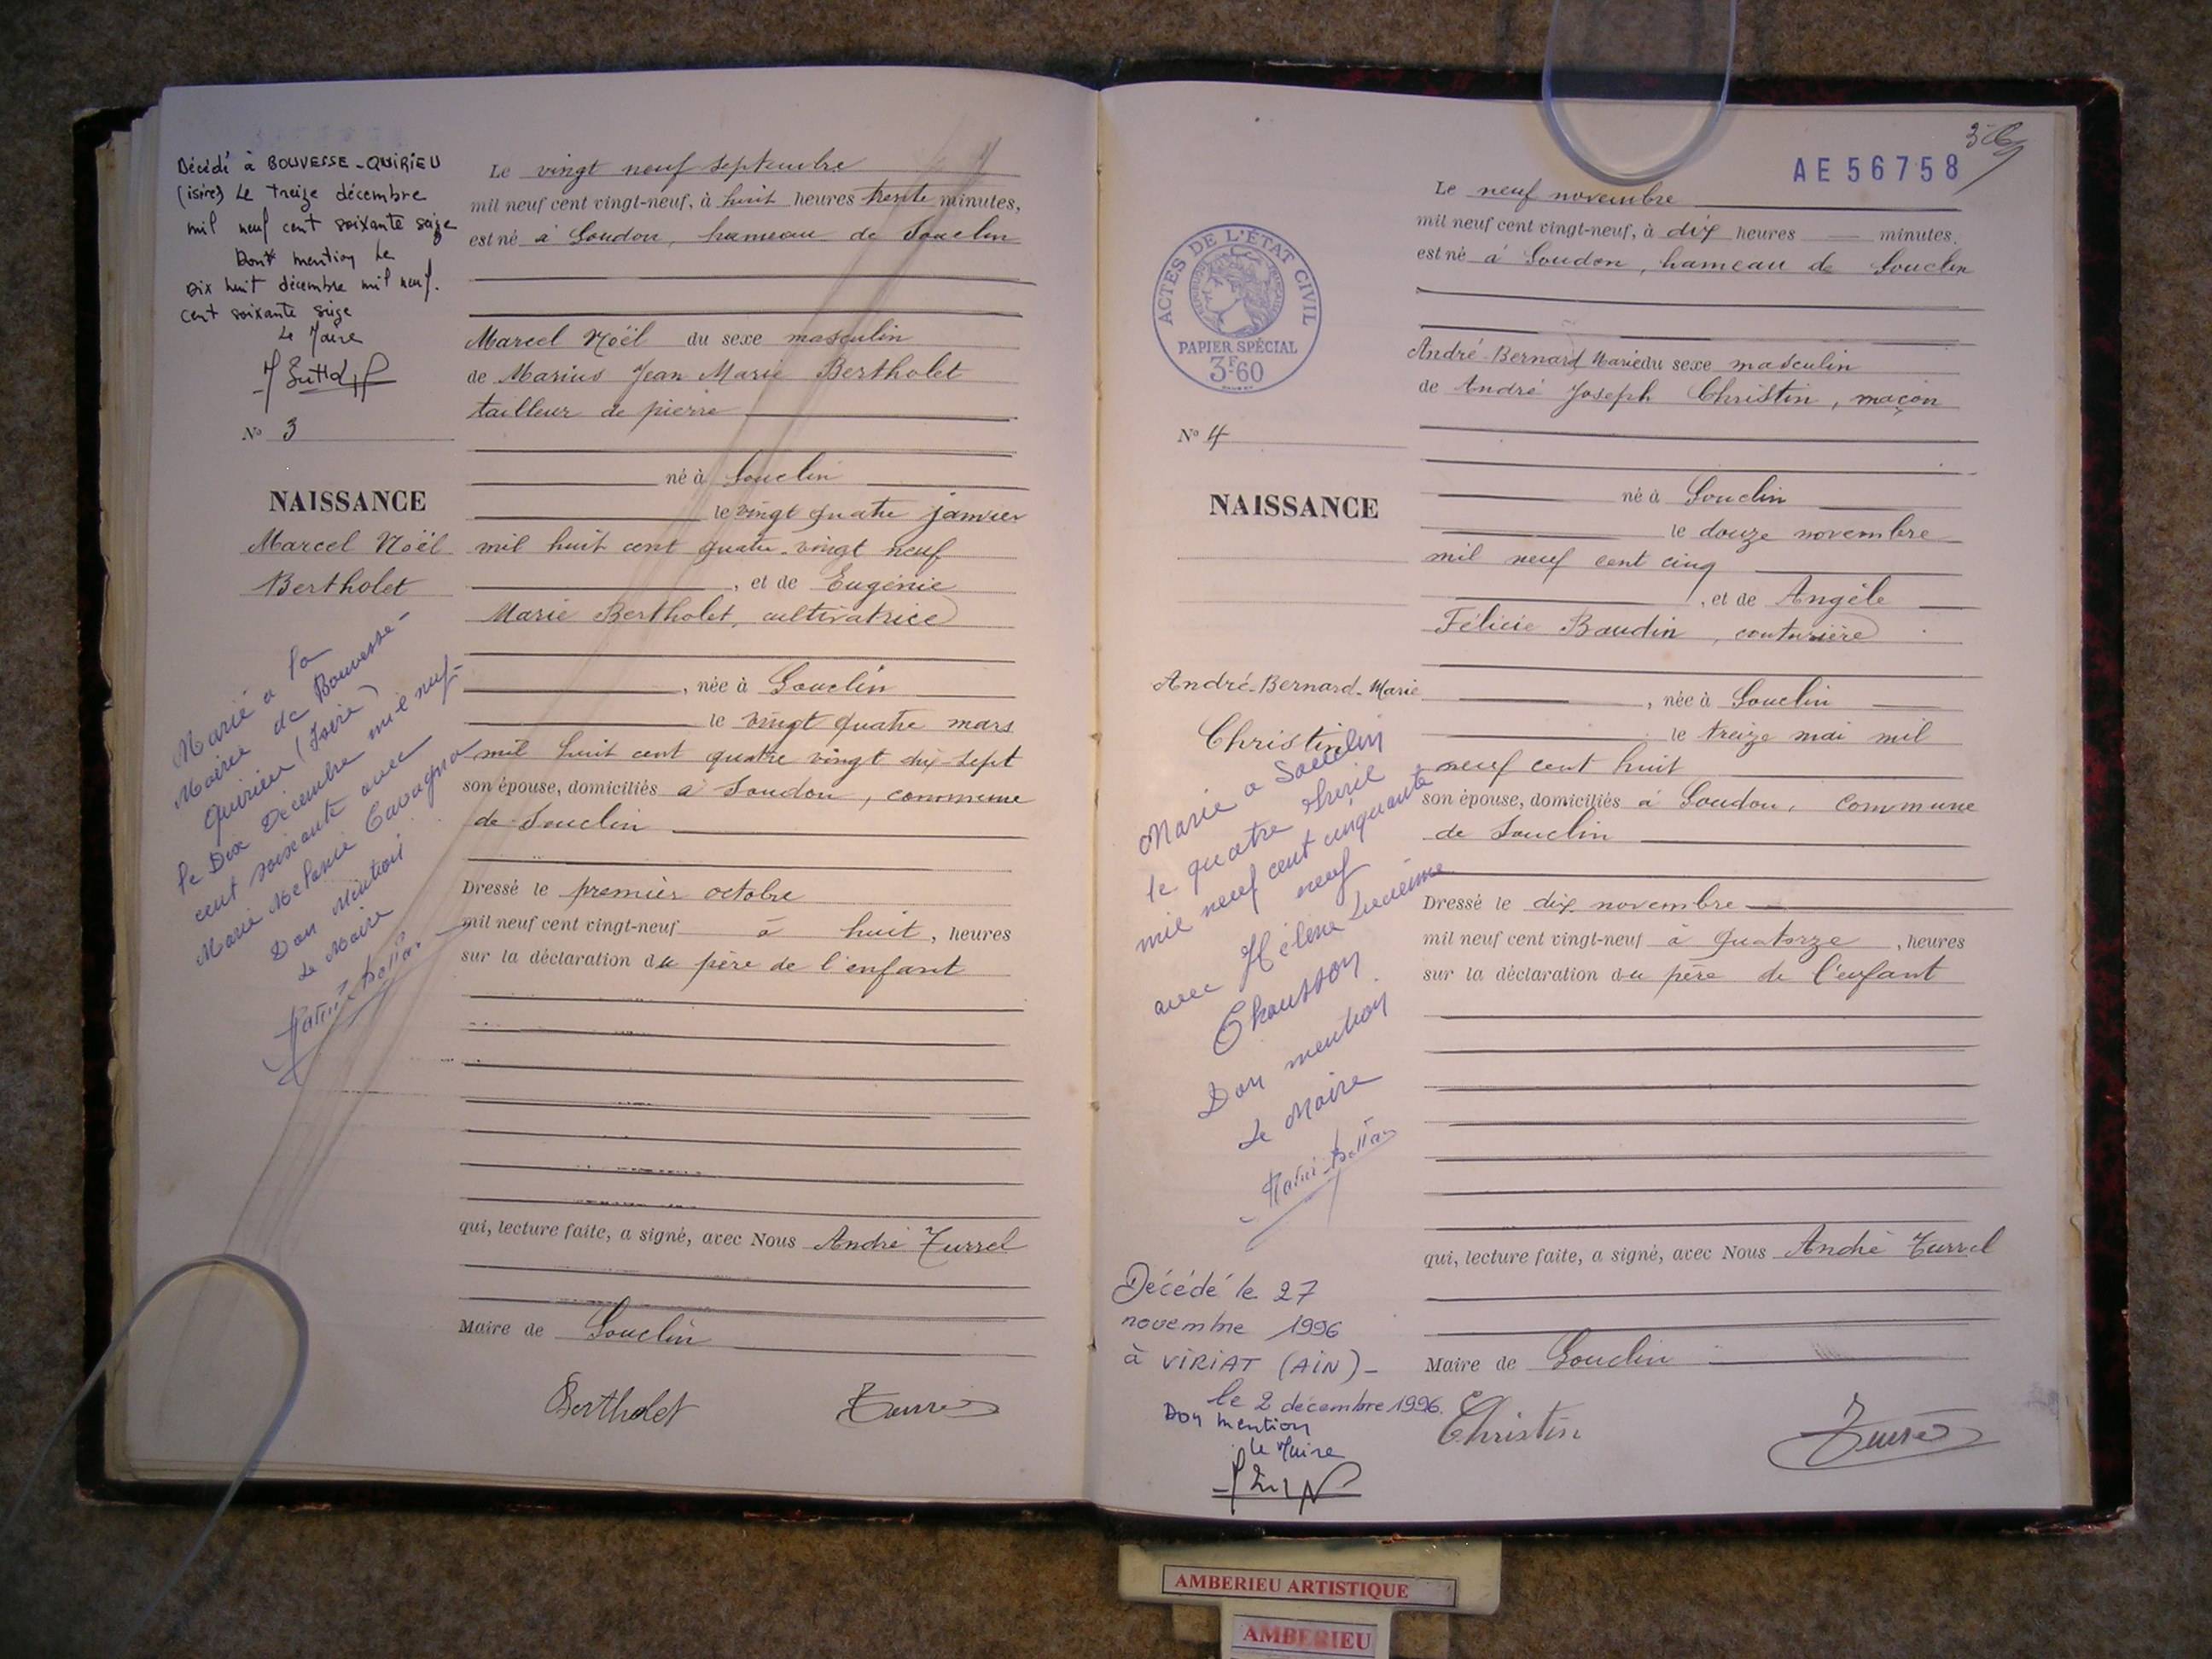 Décédé à BOUVESSE-QUIRIEU
(isère) Le treize décembre
mil neuf cent soixante seize
Dont mention le
Dix huit décembre mil neuf.
cent soixante seize
Le Maire
No 3
NAISSANCE
Marcel Noël
Bertholet
Marié a la
Mairie de Bouvesse-
Quirieu (Isère)
le Dix Décembre mil neuf-
cent soixante avec
Marie Melanie Cavagna
Don Mention
Le Maire
Le vingt neuf septembre
mil neuf cent vingt-neuf, à huit heures trente minutes,
est né à Soudon, hameau de Souclin
Marcel Noël du sexe masculin
de Marius Jean Marie Bertholet
tailleur de pierre
né à Souclin
le vingt quatre janvier
mil huit cent quatre-vingt neuf
, et de Eugénie
Marie Bertholet, cultivatrice
, née à Souclin
le vingt quatre mars
mil huit cent quatre vingt dix-sept
son épouse, domiciliés à Soudon, commune
de Souclin
Dressé le premier octobre
mil neuf cent vingt-neuf à huit, heures
sur la déclaration du père de l'enfant
qui, lecture faite, a signé, avec Nous André Turrel
Maire de Souclin
Bertholet
AE 56758
ACTES DE L'ÉTAT CIVIL
RÉPUBLIQUE FRANÇAISE
PAPIER SPÉCIAL
3F60
No 4
NAISSANCE
André-Bernard-Marie
Christin
Marié a Souclin
le quatre Avril
mil neuf cent cinquante
neuf
avec Hélène Lucienne
Chausson
Don mention
Le Maire
Décédé le 27
novembre 1996
à VIRIAT (AIN)-
le 2 décembre 1996.
Don mention
le Maire
Le neuf novembre
mil neuf cent vingt-neuf, à dix heures minutes.
est né à Soudon, hameau de Souclin
André-Bernard Marie du sexe masculin
de André Joseph Christin, maçon
né à Souclin
le douze novembre
mil neuf cent cinq
, et de Angèle
Félicie Baudin, couturière
, née à Souclin
le treize mai mil
neuf cent huit
son épouse, domiciliés à Soudon, Commune
de Souclin
Dressé le dix novembre
mil neuf cent vingt-neuf à quatorze, heures
sur la déclaration du père de l'enfant
qui, lecture faite, a signé, avec Nous André Turrel
Maire de Souclin
Christin
AMBERIEU ARTISTIQUE
AMBERIEU